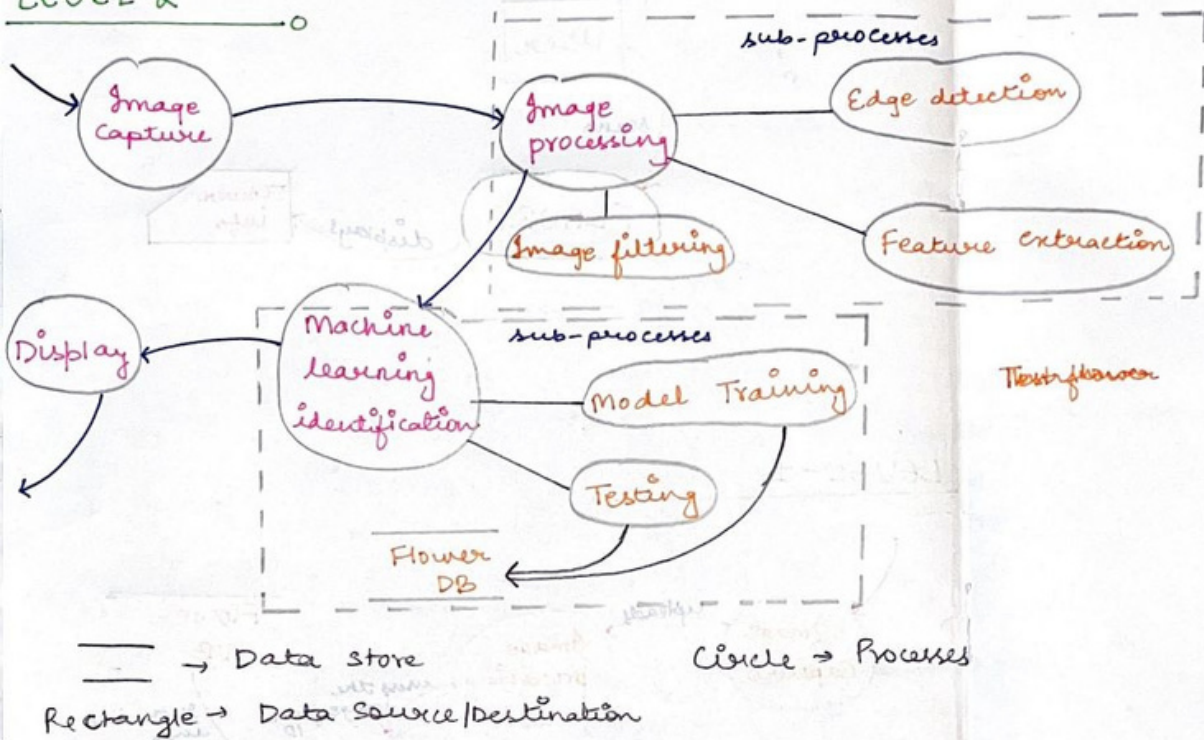 LEVEL-2
sub-processes
Image
Capture
Image
processing
Edge detection
Image filtering
Feature extraction
Display
Machine
learning
identification
sub-processes
Model Training
Testing
Flower
DB
→ Data store
Circle → Processes
Rectangle → Data Source/Destination